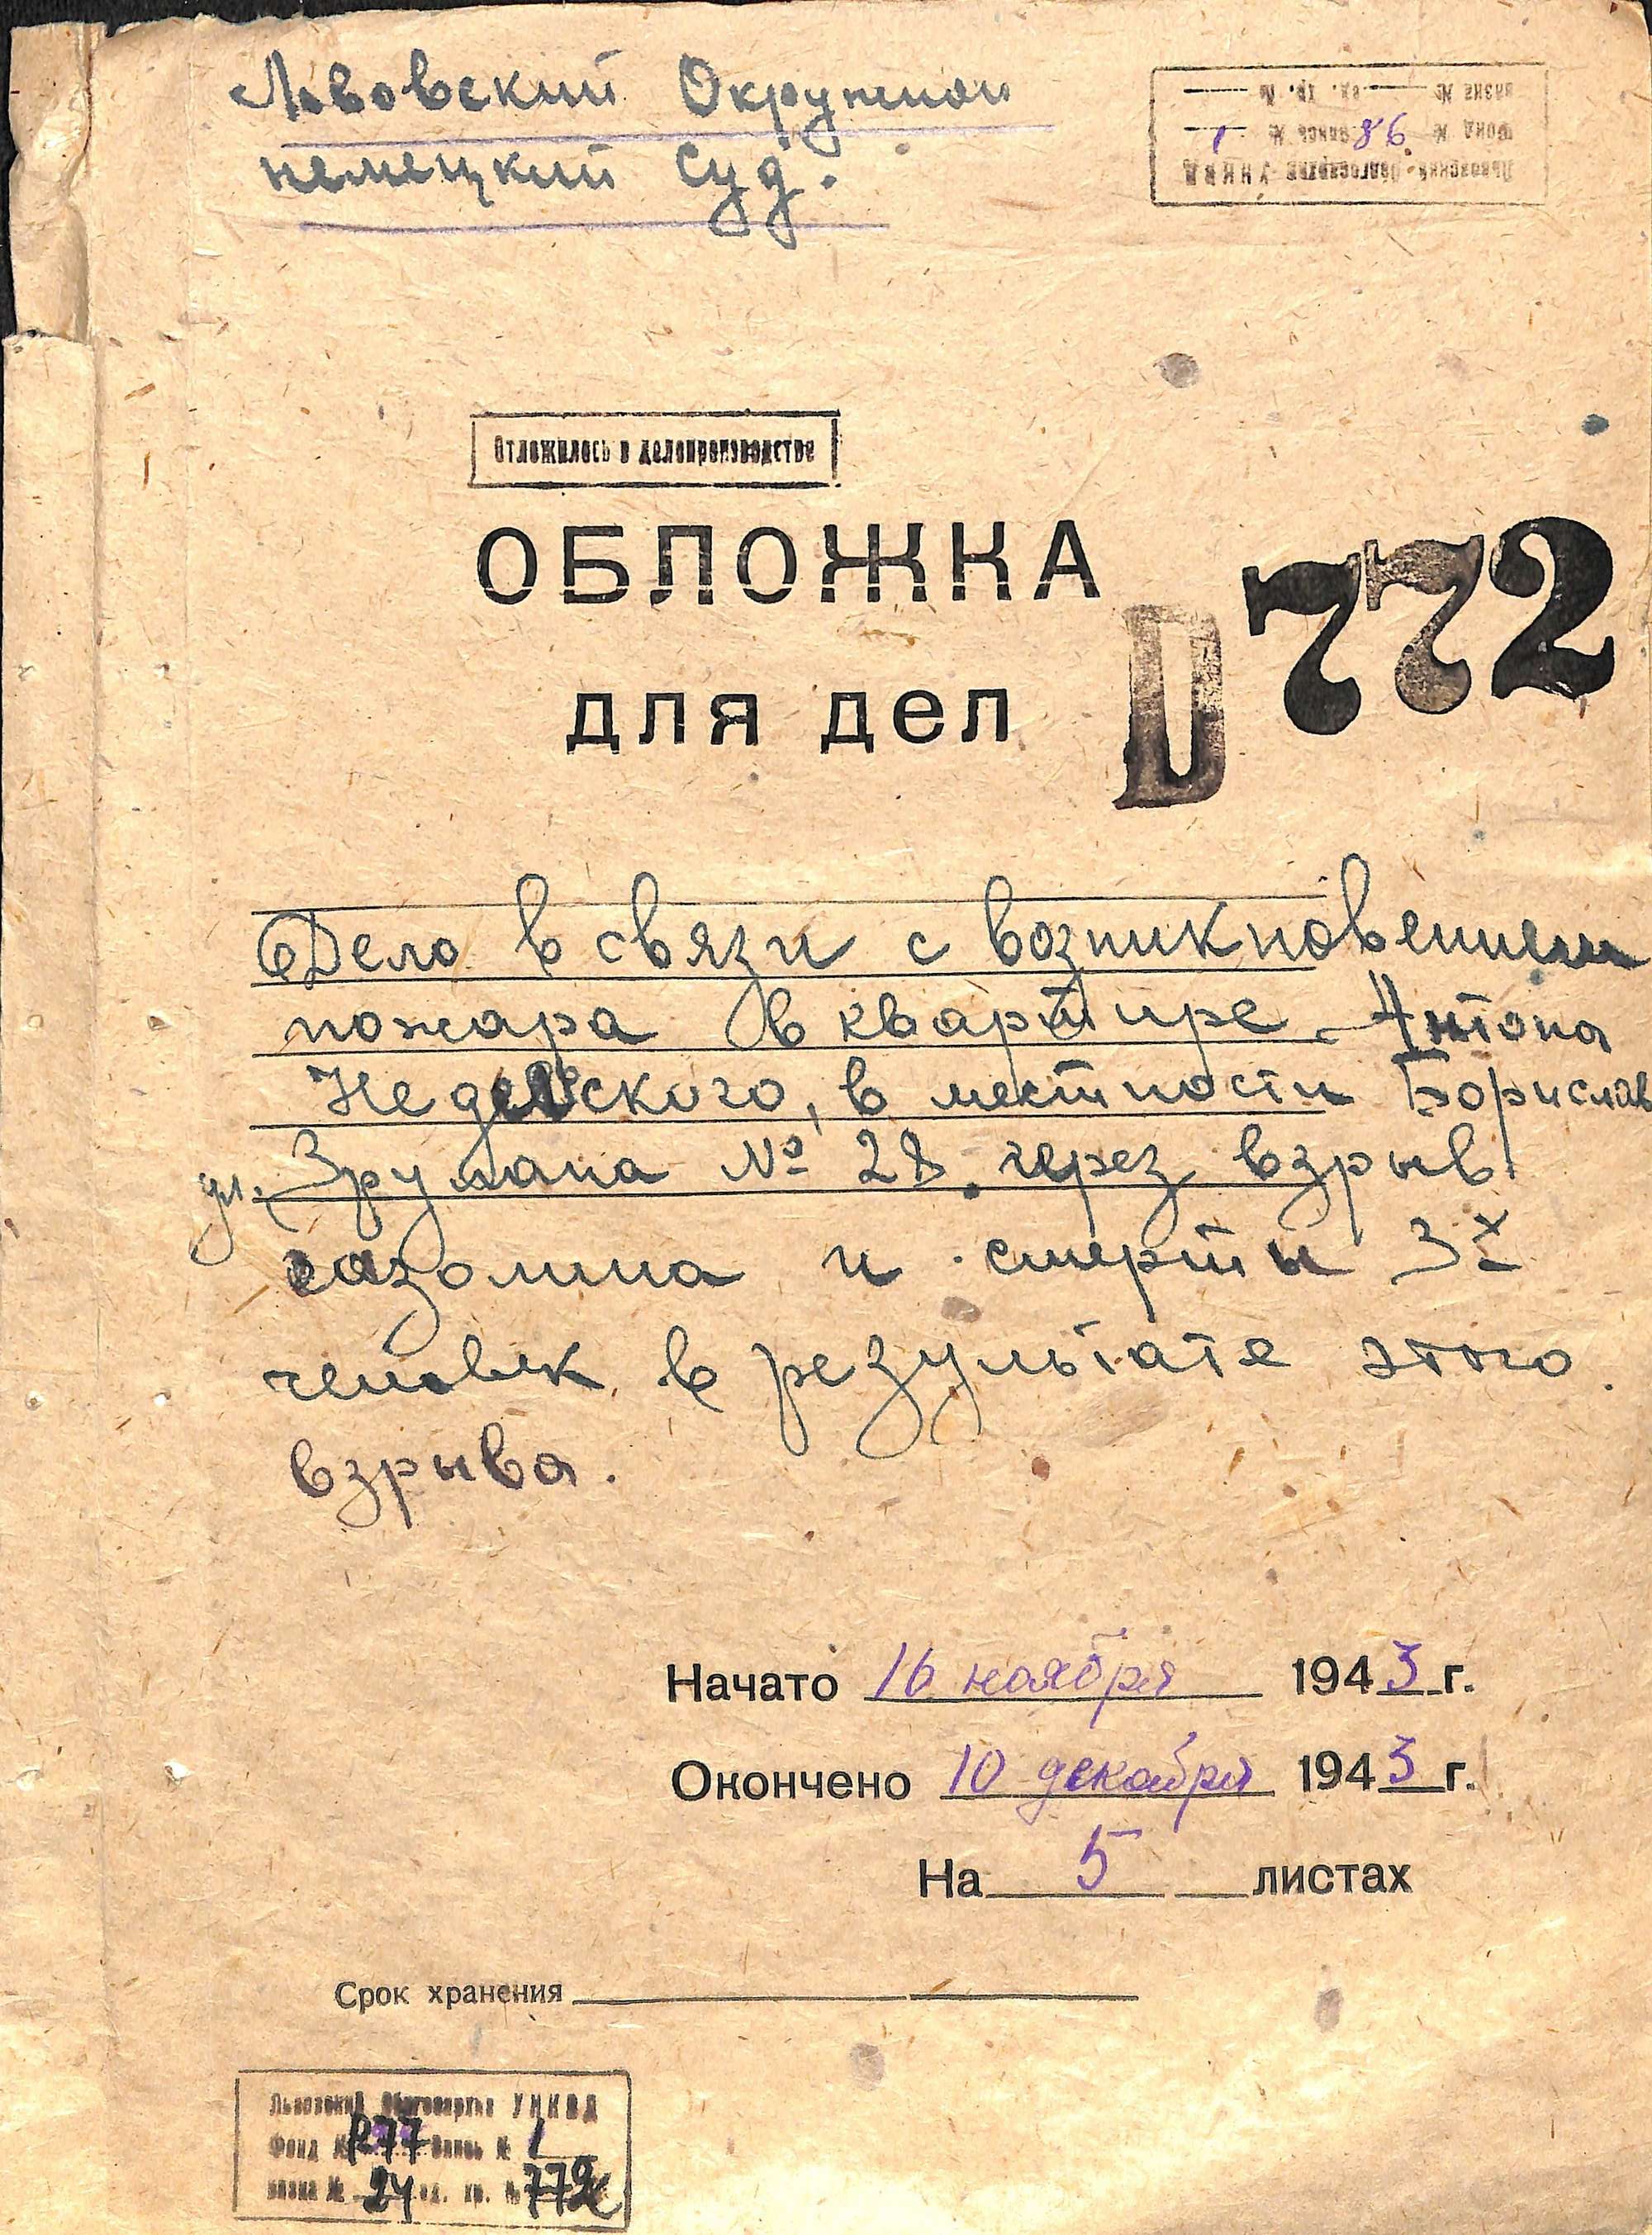 Львовский Окружной
немецкий суд.
вязка № ед. хр. №
Фонд № 86 опись № 1
Львовский Облгосархив УНКВД
Отложилось в делопроизводстве
ОБЛОЖКА
для дел
D 772
Дело в связи с возникновением
пожара в квартире Антона
в местности Борислав
ул. Зрумана № 28. через взрыв
газолина и смерти 3х
человек в результате этого
взрыва.
Начато 16 ноября 1943 г.
Окончено 10 декабря 1943 г.
На 5 листах
Срок хранения
Львовский Облгосархив УНКВД
Фонд № Р77 Опись № 1
вязка № 24 ед. хр. № 772